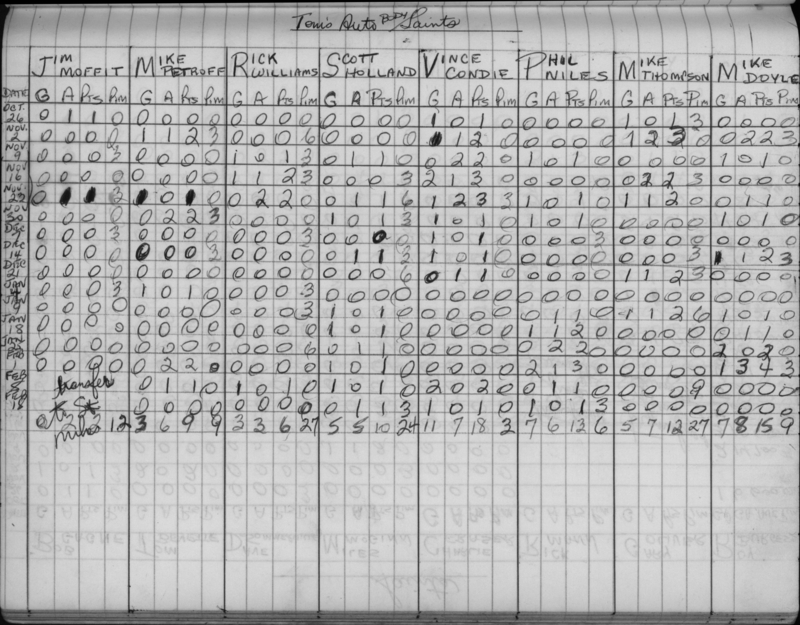 Tom's Auto BODY Saints
JIM MOFFIT MIKE PETROFF RICK WILLIAMS SCOTT HOLLAND VINCE CONDIE PHIL NILES MIKE THOMPSON MIKE DOYLE
DATE G A Pts Pim G A Pts Pim G A Pts Pim G A Pts Pim G A Pts Pim G A Pts Pim G A Pts Pim G A Pts Pim
OCT. 26 0 1 1 0 0 0 0 0 0 0 0 0 0 0 0 0 1 0 1 0 0 0 0 0 1 0 1 3 0 0 0 0
NOV. 2 0 0 0 0 1 1 2 3 0 0 0 6 0 0 0 0 1 2 0 0 0 0 0 1 2 3 0 0 2 2 3
NOV 9 0 0 0 3 0 0 0 0 1 0 1 3 0 1 1 0 0 2 2 0 1 0 1 0 0 0 0 0 1 0 1 0
NOV 16 0 0 0 0 0 0 0 0 1 1 2 3 0 0 0 3 2 1 3 0 0 0 0 0 0 2 2 3 0 0 0 0
NOV 0 1 1 3 1 0 1 0 0 2 2 0 0 1 1 6 1 2 3 3 1 0 1 0 1 1 2 0 0 1 1 0
NOV 30 0 0 0 0 0 2 2 3 0 0 0 0 1 0 1 3 1 0 1 0 1 0 1 0 0 0 0 0 1 0 1 0
DEC 0 0 0 3 0 0 0 0 0 0 0 3 0 0 0 0 1 0 1 0 0 0 0 3 0 0 0 0 0 0 0 0
DEC 14 0 0 0 0 0 0 0 3 0 0 0 0 0 1 1 3 1 0 1 0 0 0 0 0 0 0 0 3 1 1 2 3
DEC 21 0 0 0 0 0 0 0 0 0 0 0 0 0 0 0 6 0 1 1 0 0 0 0 0 1 1 2 3 0 0 0 0
JAN 4 0 0 0 3 1 0 1 0 0 0 0 3 0 0 0 0 0 0 0 0 0 0 0 0 0 0 0 0 0 0 0 0
JAN 0 0 0 0 0 0 0 0 0 0 0 3 1 0 1 0 0 0 0 0 0 1 1 0 1 1 2 6 1 0 1 0
JAN 18 0 0 0 0 0 0 0 0 0 0 0 0 1 0 1 0 0 0 0 0 1 1 2 0 0 0 0 0 0 1 1 0
JAN 0 0 0 0 0 0 0 0 0 0 0 6 0 1 1 0 0 0 0 0 0 2 2 0 0 0 0 0 2 0 2 0
FEB 0 0 0 0 0 2 2 0 0 0 0 0 1 0 1 0 0 0 0 0 2 1 3 0 0 0 0 0 1 3 4 3
FEB transfer 0 1 1 0 1 0 1 0 1 0 1 0 2 0 2 0 0 1 1 0 0 0 0 9 0 0 0 0
FEB 15 0 0 0 0 0 0 0 0 0 1 1 3 1 0 1 0 1 0 1 3 0 0 0 0 0 0 0 0
0 12 3 6 9 9 3 3 6 27 5 5 10 24 11 7 18 3 7 6 13 6 5 7 12 27 7 8 15 9